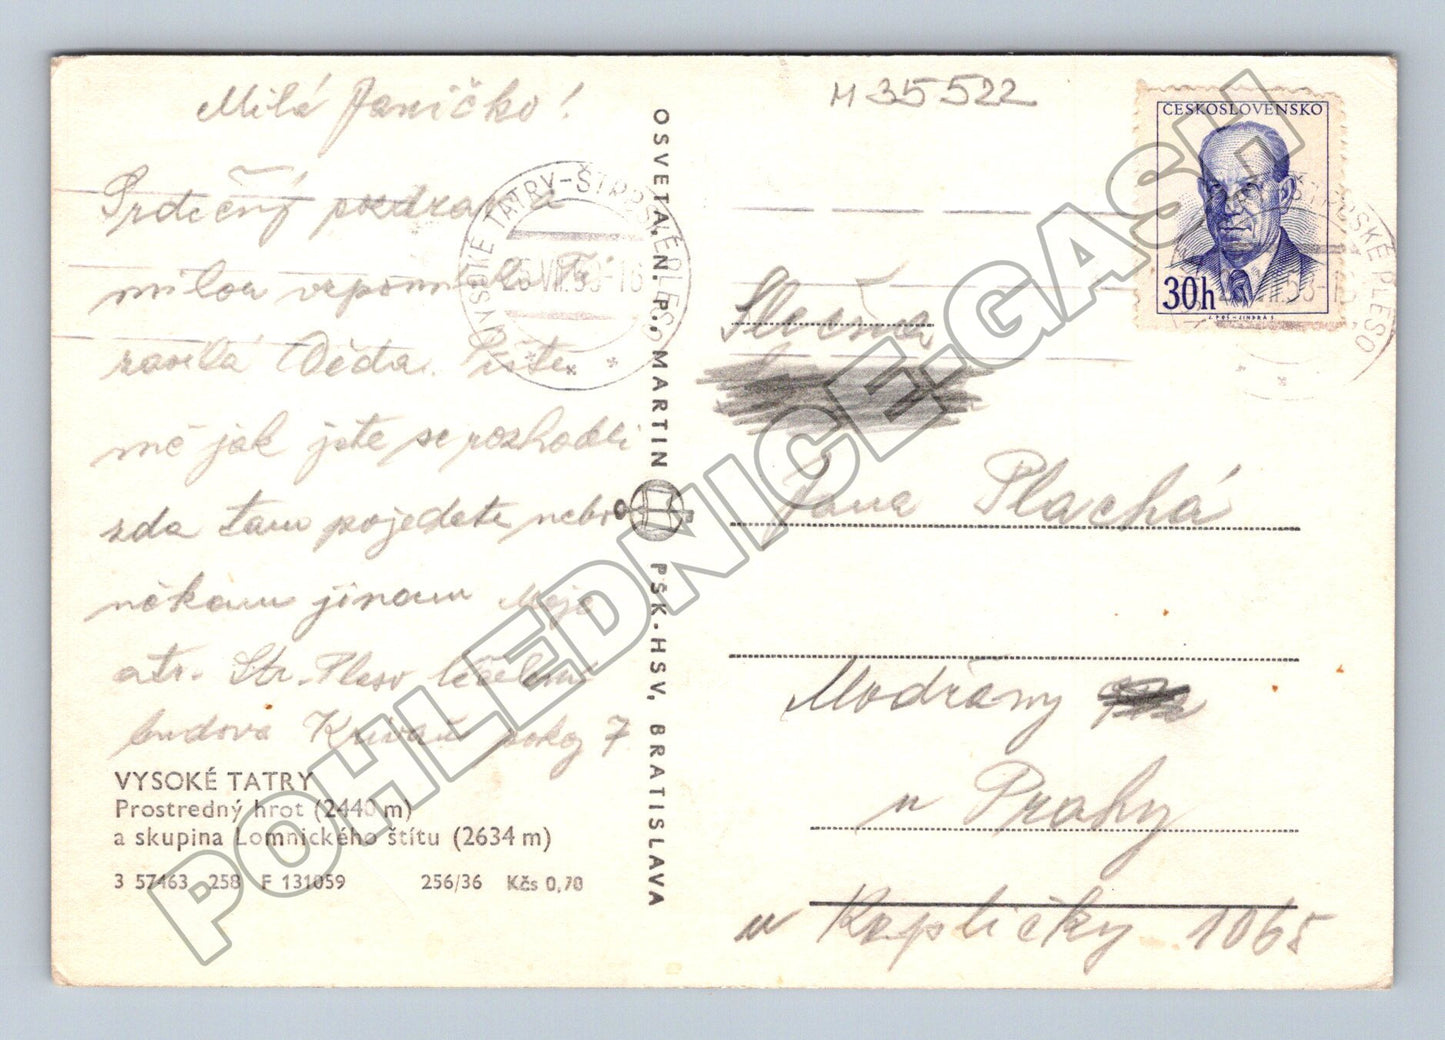 Milá Janičko!
Srdečný pozdrav a
milou vzpomínku Ti
zasílá Děda. Pište
mě jak jste se rozhodli
zda tam pojedete nebo
někam jinam Moje
atr. Štr. Pleso léčebna
budova Kriváň pokoj 7
VYSOKÉ TATRY
Prostredný hrot (2440 m)
a skupina Lomnického štítu (2634 m)
3 57463 258 F 131059 256/36 Kčs 0,70
OSVETA, N. P., MARTIN
PSK-HSV, BRATISLAVA
VYSOKÉ TATRY-ŠTRBSKÉ PLESO
H 35522
ČESKOSLOVENSKO
30h
ŠTRBSKÉ PLESO
Slečna
Jana Plachá
Modřany
u Prahy
u Kapličky 1065
POHLEDNICE-GASH